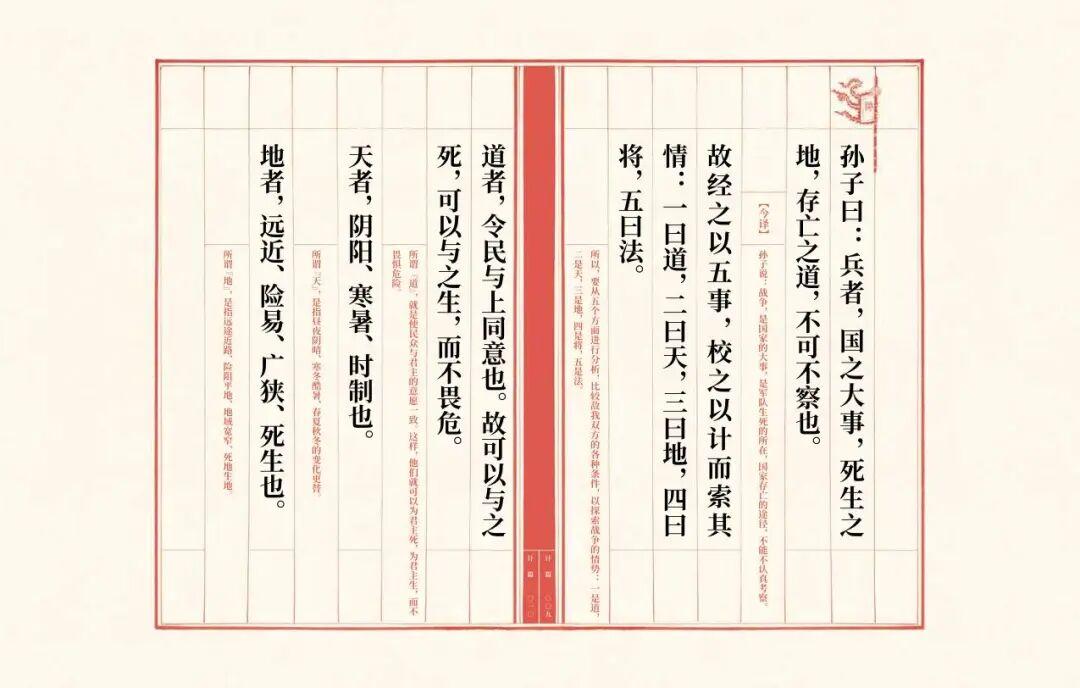 孙子曰：兵者，国之大事，死生之
地，存亡之道，不可不察也。
【今译】
孙子说：战争，是国家的大事，是军队生死的所在，国家存亡的途径，不能不认真考察。
故经之以五事，校之以计而索其
情：一曰道，二曰天，三曰地，四曰
将，五曰法。
所以，要从五个方面进行分析，比较敌我双方的各种条件，以探索战争的情势：一是道，
二是天，三是地，四是将，五是法。
计篇 〇〇九
计篇 〇一〇
道者，令民与上同意也。故可以与之
死，可以与之生，而不畏危。
所谓『道』，就是使民众与君主的意愿一致。这样，他们就可以为君主死，为君主生，而不
畏惧危险。
天者，阴阳、寒暑、时制也。
所谓『天』，是指昼夜阴晴、寒冬酷暑、春夏秋冬的变化更替。
地者，远近、险易、广狭、死生也。
所谓『地』，是指远途近路、险阻平地、地域宽窄、死地生地。